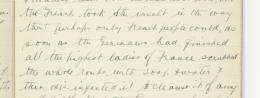 the French took the insult in the way
that perhaps only French people could, as
soon as the Germans had finished
all the highest ladies of France scrubbed
the whole route with soap & water &
then disinfected it to cleanse it of any